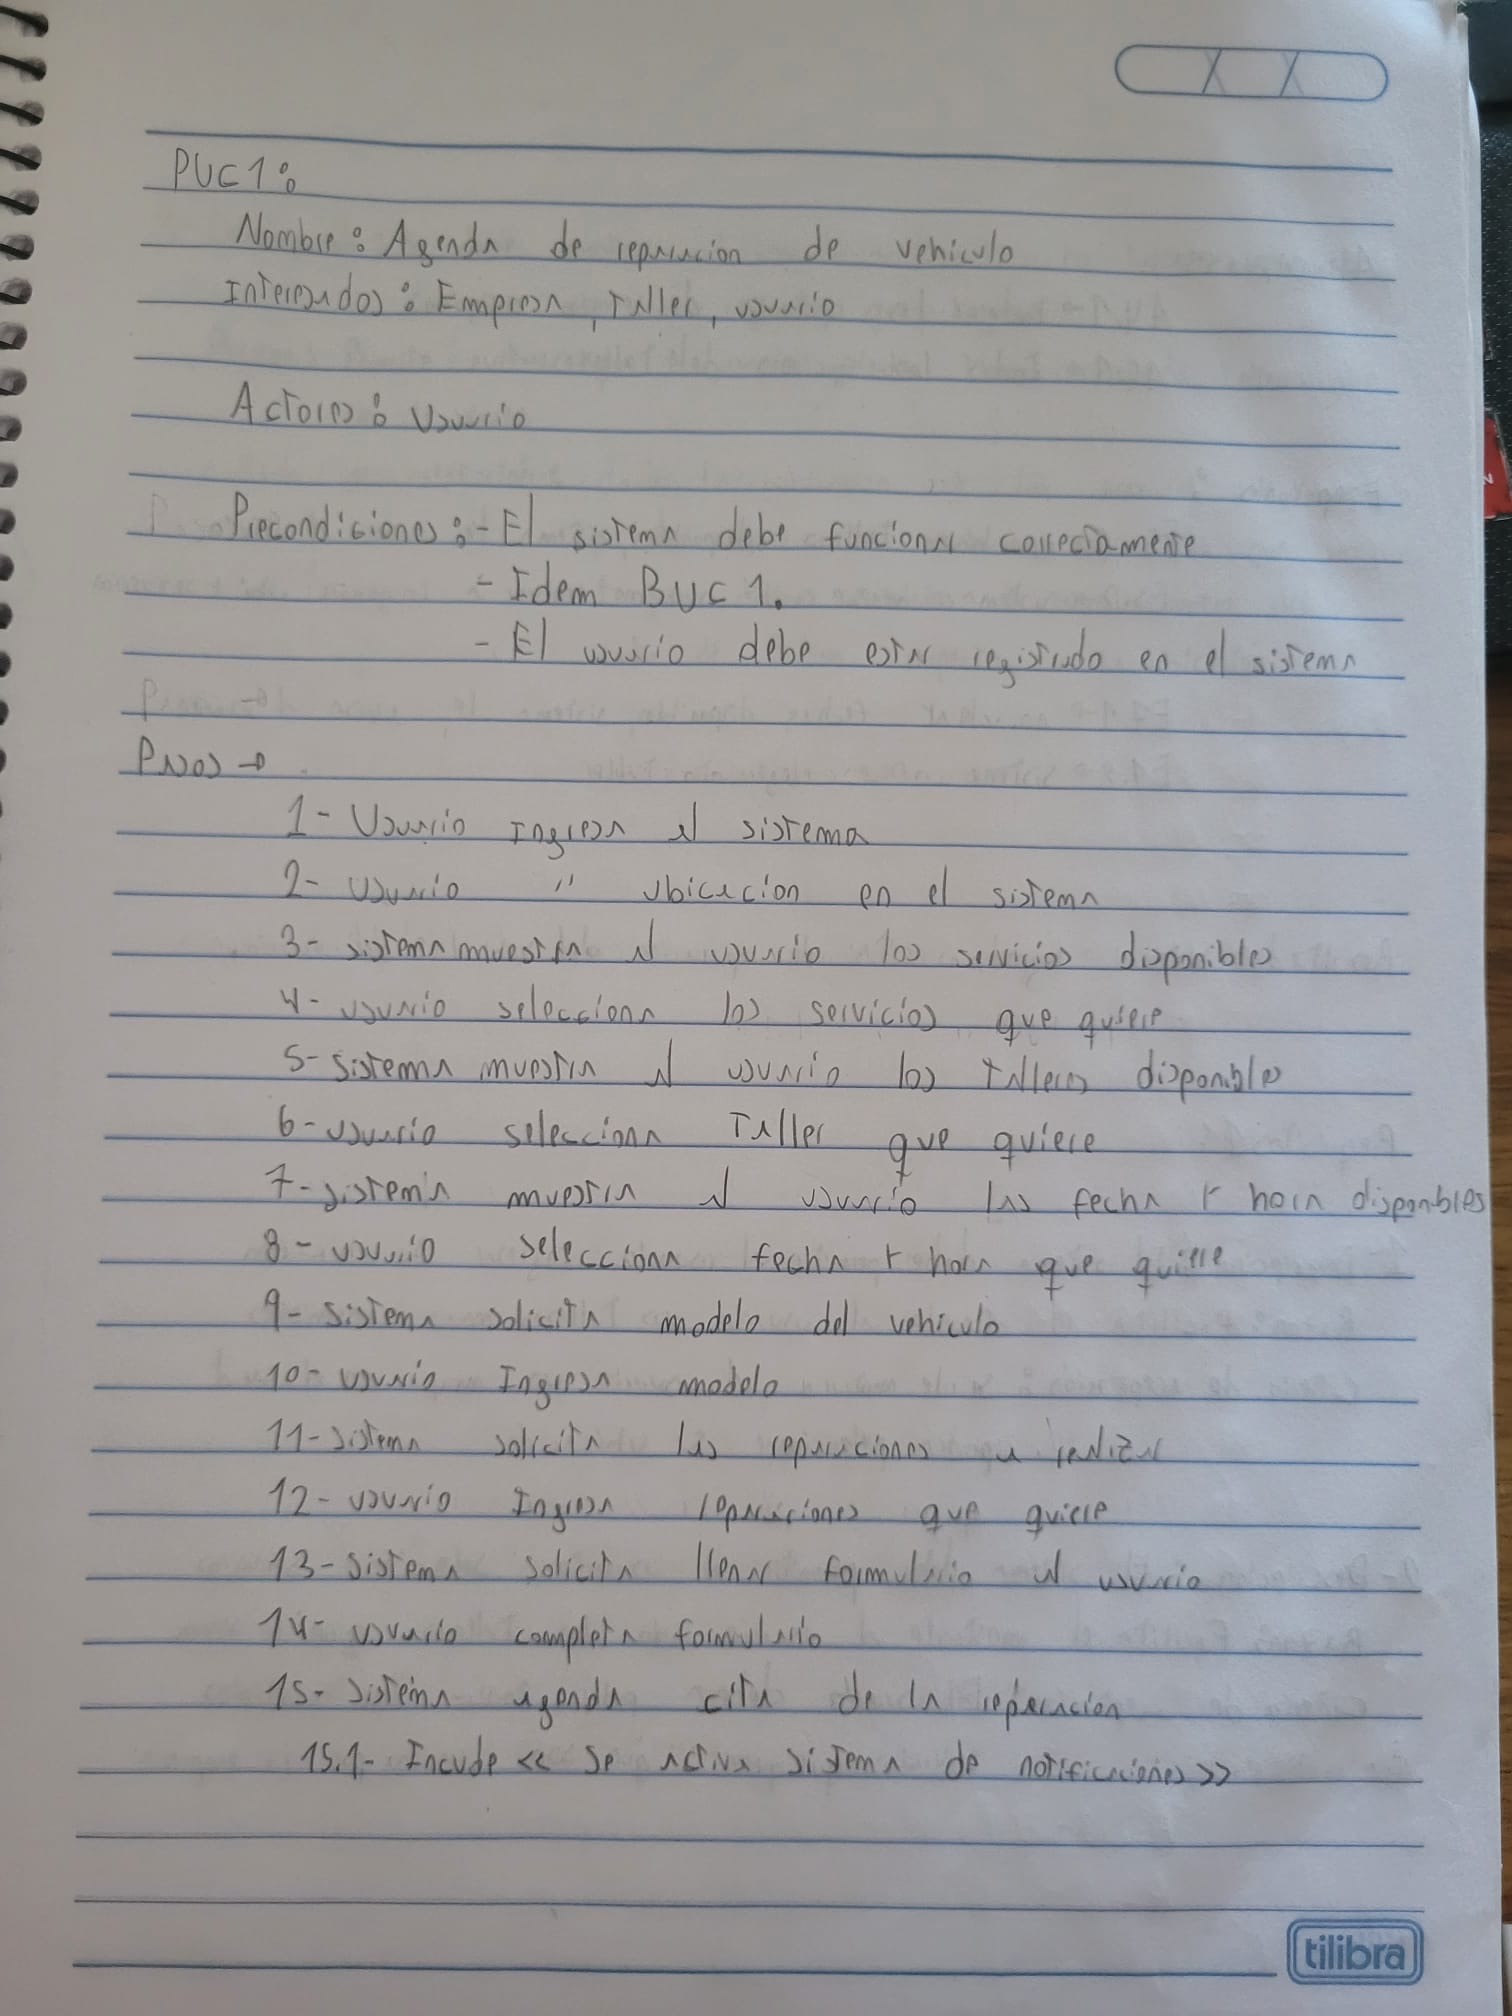 PUC 1:
Nombre: Agenda de reparacion de vehiculo
Interesados: Empresa, Taller, usuario
Actores: Usuario
Precondiciones: - El sistema debe funcionar correctamente
- Idem BUC 1.
- El usuario debe estar registrado en el sistema
Pasos →
1- Usuario Ingresa al sistema
2- usuario " ubicacion en el sistema
3- sistema muestra al usuario los servicios disponibles
4- usuario selecciona los servicios que quiere
5- sistema muestra al usuario los talleres disponibles
6- usuario selecciona Taller que quiere
7- sistema muestra al usuario las fecha y hora disponbles
8- usuario selecciona fecha y hora que quiere
9- sistema solicita modelo del vehiculo
10- usuario Ingresa modelo
11- sistema solicita las reparaciones a realizar
12- usuario Ingresa reparaciones que quiere
13- sistema solicita llenar formulario al usuario
14- usuario completa formulario
15- sistema agenda cita de la reparacion
15.1- Incude << Se activa sistema de notificaciones >>
tilibra